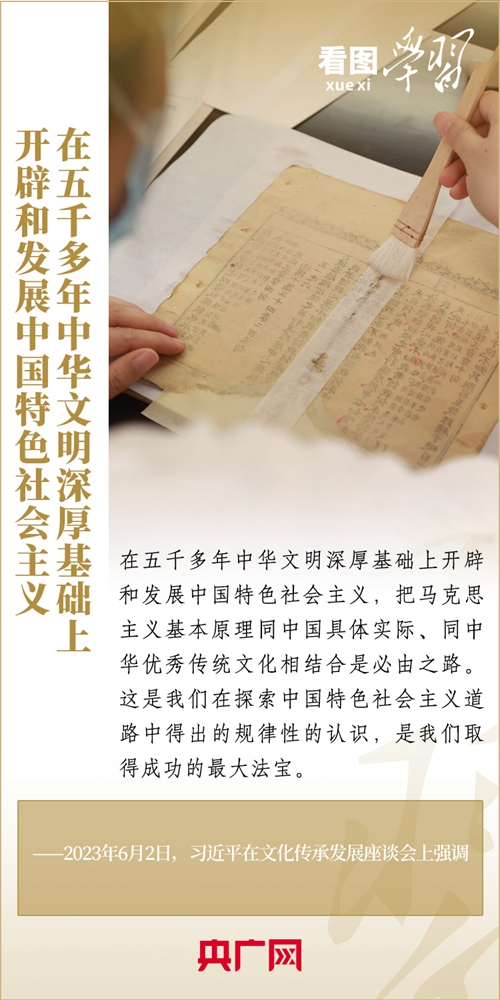 看图学習
xue xi
在五千多年中华文明深厚基础上
开辟和发展中国特色社会主义
在五千多年中华文明深厚基础上开辟
和发展中国特色社会主义，把马克思
主义基本原理同中国具体实际、同中
华优秀传统文化相结合是必由之路。
这是我们在探索中国特色社会主义道
路中得出的规律性的认识，是我们取
得成功的最大法宝。
——2023年6月2日，习近平在文化传承发展座谈会上强调
央广网